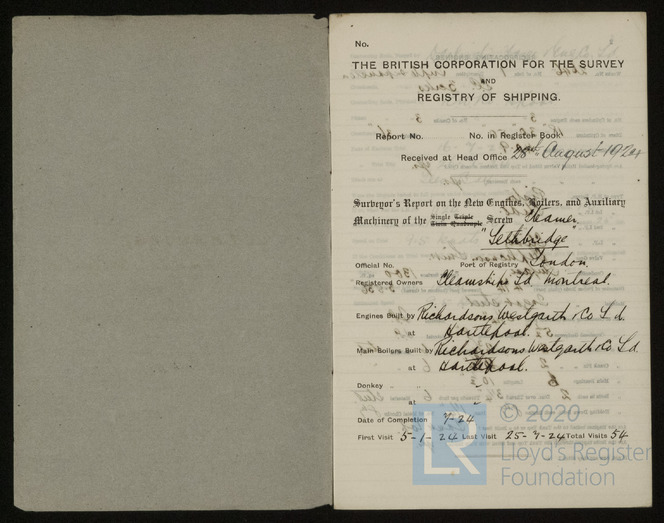 No.
THE BRITISH CORPORATION FOR THE SURVEY
AND
REGISTRY OF SHIPPING.
Report No. No. in Register Book
Received at Head Office 28th August 1924
Surveyor's Report on the New Engines, Boilers, and Auxiliary
Machinery of the Single Triple Twin Quadruple Screw Steamer
"Lethbridge"
Official No. Port of Registry London
Registered Owners Steamships Ld Montreal.
Engines Built by Richardsons Westgarth & Co Ld.
at Hartlepool.
Main Boilers Built by Richardsons Westgarth & Co Ld.
at Hartlepool.
Donkey " "
at "
Date of Completion 7-24
First Visit 5-1-24 Last Visit 25-7-24 Total Visits 54
© 2020
LR Lloyd's Register
Foundation